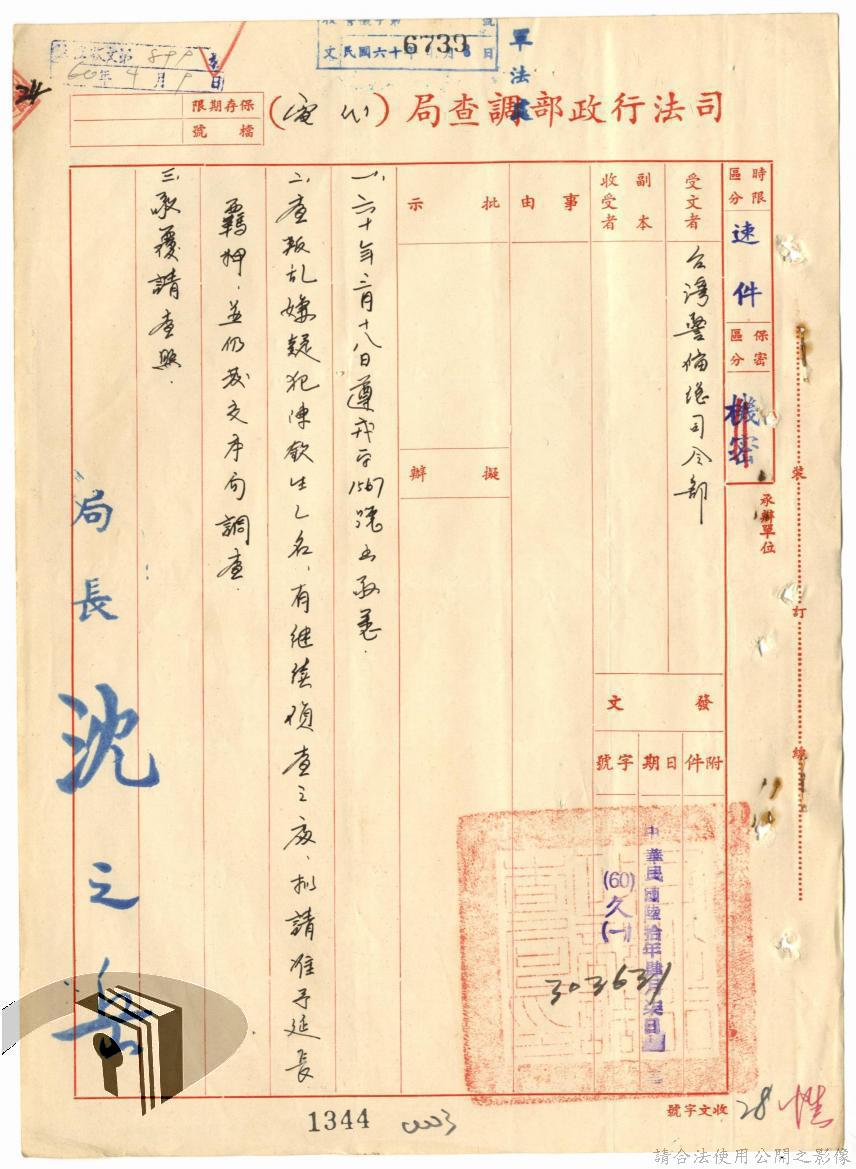 6739
軍法處
司法行政部調查局（函）
保存期限
檔號
時限區分
速件
保密區分
機密
受文者
台灣警備總司令部
副本收受者
事由
批示
擬辦
發文
附件
日期
字號
中華民國陸拾年肆月柒日
(60)久(一)
303631
一、六十年三月十八日遵戎字1567號書函悉。
二、查叛乱嫌疑犯陳欽生乙名，有继续偵查之處，擬請准予延長
羈押，並仍發交本局調查。
三、函覆請查照。
局長沈之岳
承辦單位
裝
訂
線
收文字號
28
1344
0003
請合法使用公開之影像